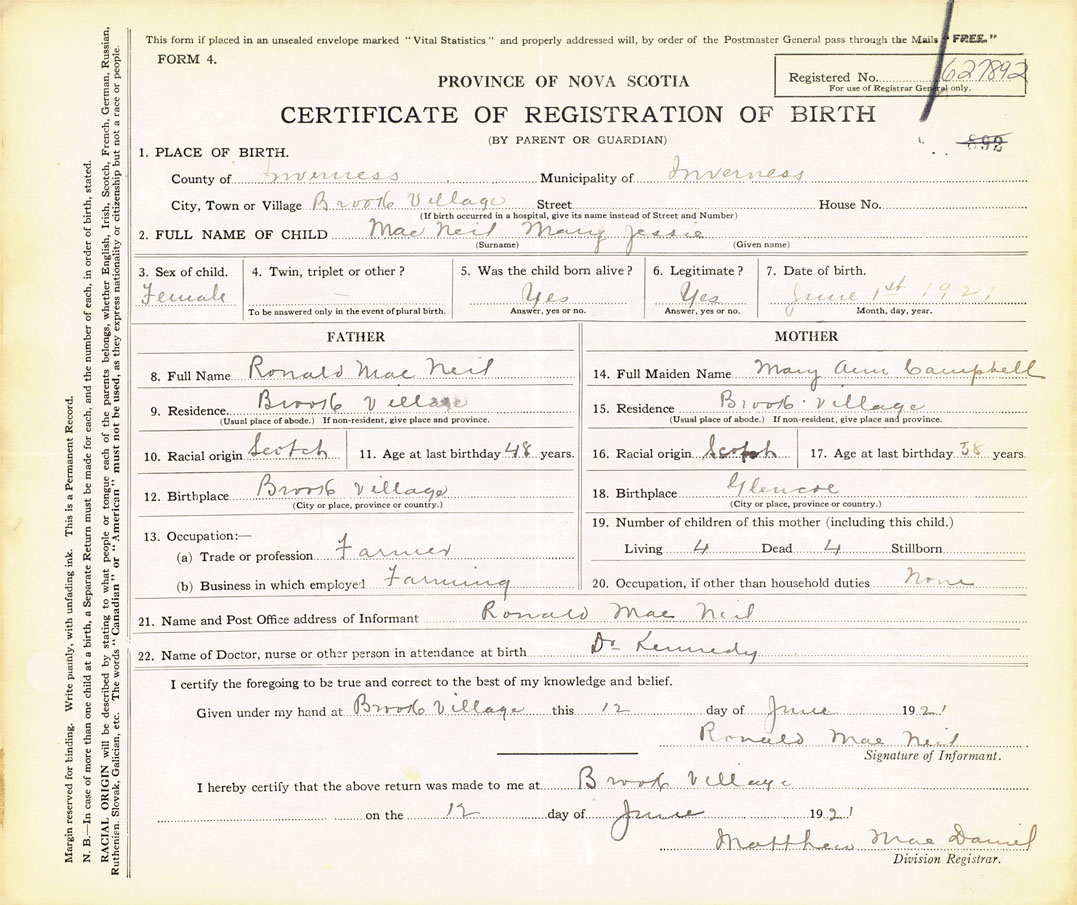 This form if placed in an unsealed envelope marked "Vital Statistics" and properly addressed will, by order of the Postmaster General pass through the Mails "FREE."
FORM 4.
Registered No. 627892
For use of Registrar General only.
PROVINCE OF NOVA SCOTIA
CERTIFICATE OF REGISTRATION OF BIRTH
(BY PARENT OR GUARDIAN)
892
1. PLACE OF BIRTH.
County of Inverness Municipality of Inverness
City, Town or Village Brook Village Street House No.
(If birth occurred in a hospital, give its name instead of Street and Number)
2. FULL NAME OF CHILD Mac Neil Mary Jessie
(Surname) (Given name)
3. Sex of child. 4. Twin, triplet or other? 5. Was the child born alive? 6. Legitimate? 7. Date of birth.
Female — Yes Yes June 1st 1921
To be answered only in the event of plural birth. Answer, yes or no. Answer, yes or no. Month, day, year.
FATHER
8. Full Name Ronald Mac Neil
9. Residence. Brook Village
(Usual place of abode.) If non-resident, give place and province.
10. Racial origin Scotch 11. Age at last birthday 48 years.
12. Birthplace Brook Village
(City or place, province or country.)
13. Occupation:—
(a) Trade or profession Farmer
(b) Business in which employed Farming
MOTHER
14. Full Maiden Name Mary Ann Campbell
15. Residence Brook Village
(Usual place of abode.) If non-resident, give place and province.
16. Racial origin Scotch 17. Age at last birthday 38 years
18. Birthplace Glencoe
(City or place, province or country.)
19. Number of children of this mother (including this child.)
Living 4 Dead 4 Stillborn
20. Occupation, if other than household duties None
21. Name and Post Office address of Informant Ronald Mac Neil
22. Name of Doctor, nurse or other person in attendance at birth Dr Kennedy
I certify the foregoing to be true and correct to the best of my knowledge and belief.
Given under my hand at Brook Village this 12 day of June 1921
Ronald Mac Neil
Signature of Informant.
I hereby certify that the above return was made to me at Brook Village
on the 12 day of June 1921
Matthew Mac Daniel
Division Registrar.
Margin reserved for binding. Write plainly, with unfading ink. This is a Permanent Record.
N. B.—In case of more than one child at a birth, a Separate Return must be made for each, and the number of each, in order of birth, stated.
RACIAL ORIGIN will be described by stating to what people or tongue each of the parents belongs, whether English, Irish, Scotch, French, German, Russian,
Ruthenian, Slovak, Galician, etc. The words "Canadian" or "American" must not be used, as they express nationality or citizenship but not a race or people.